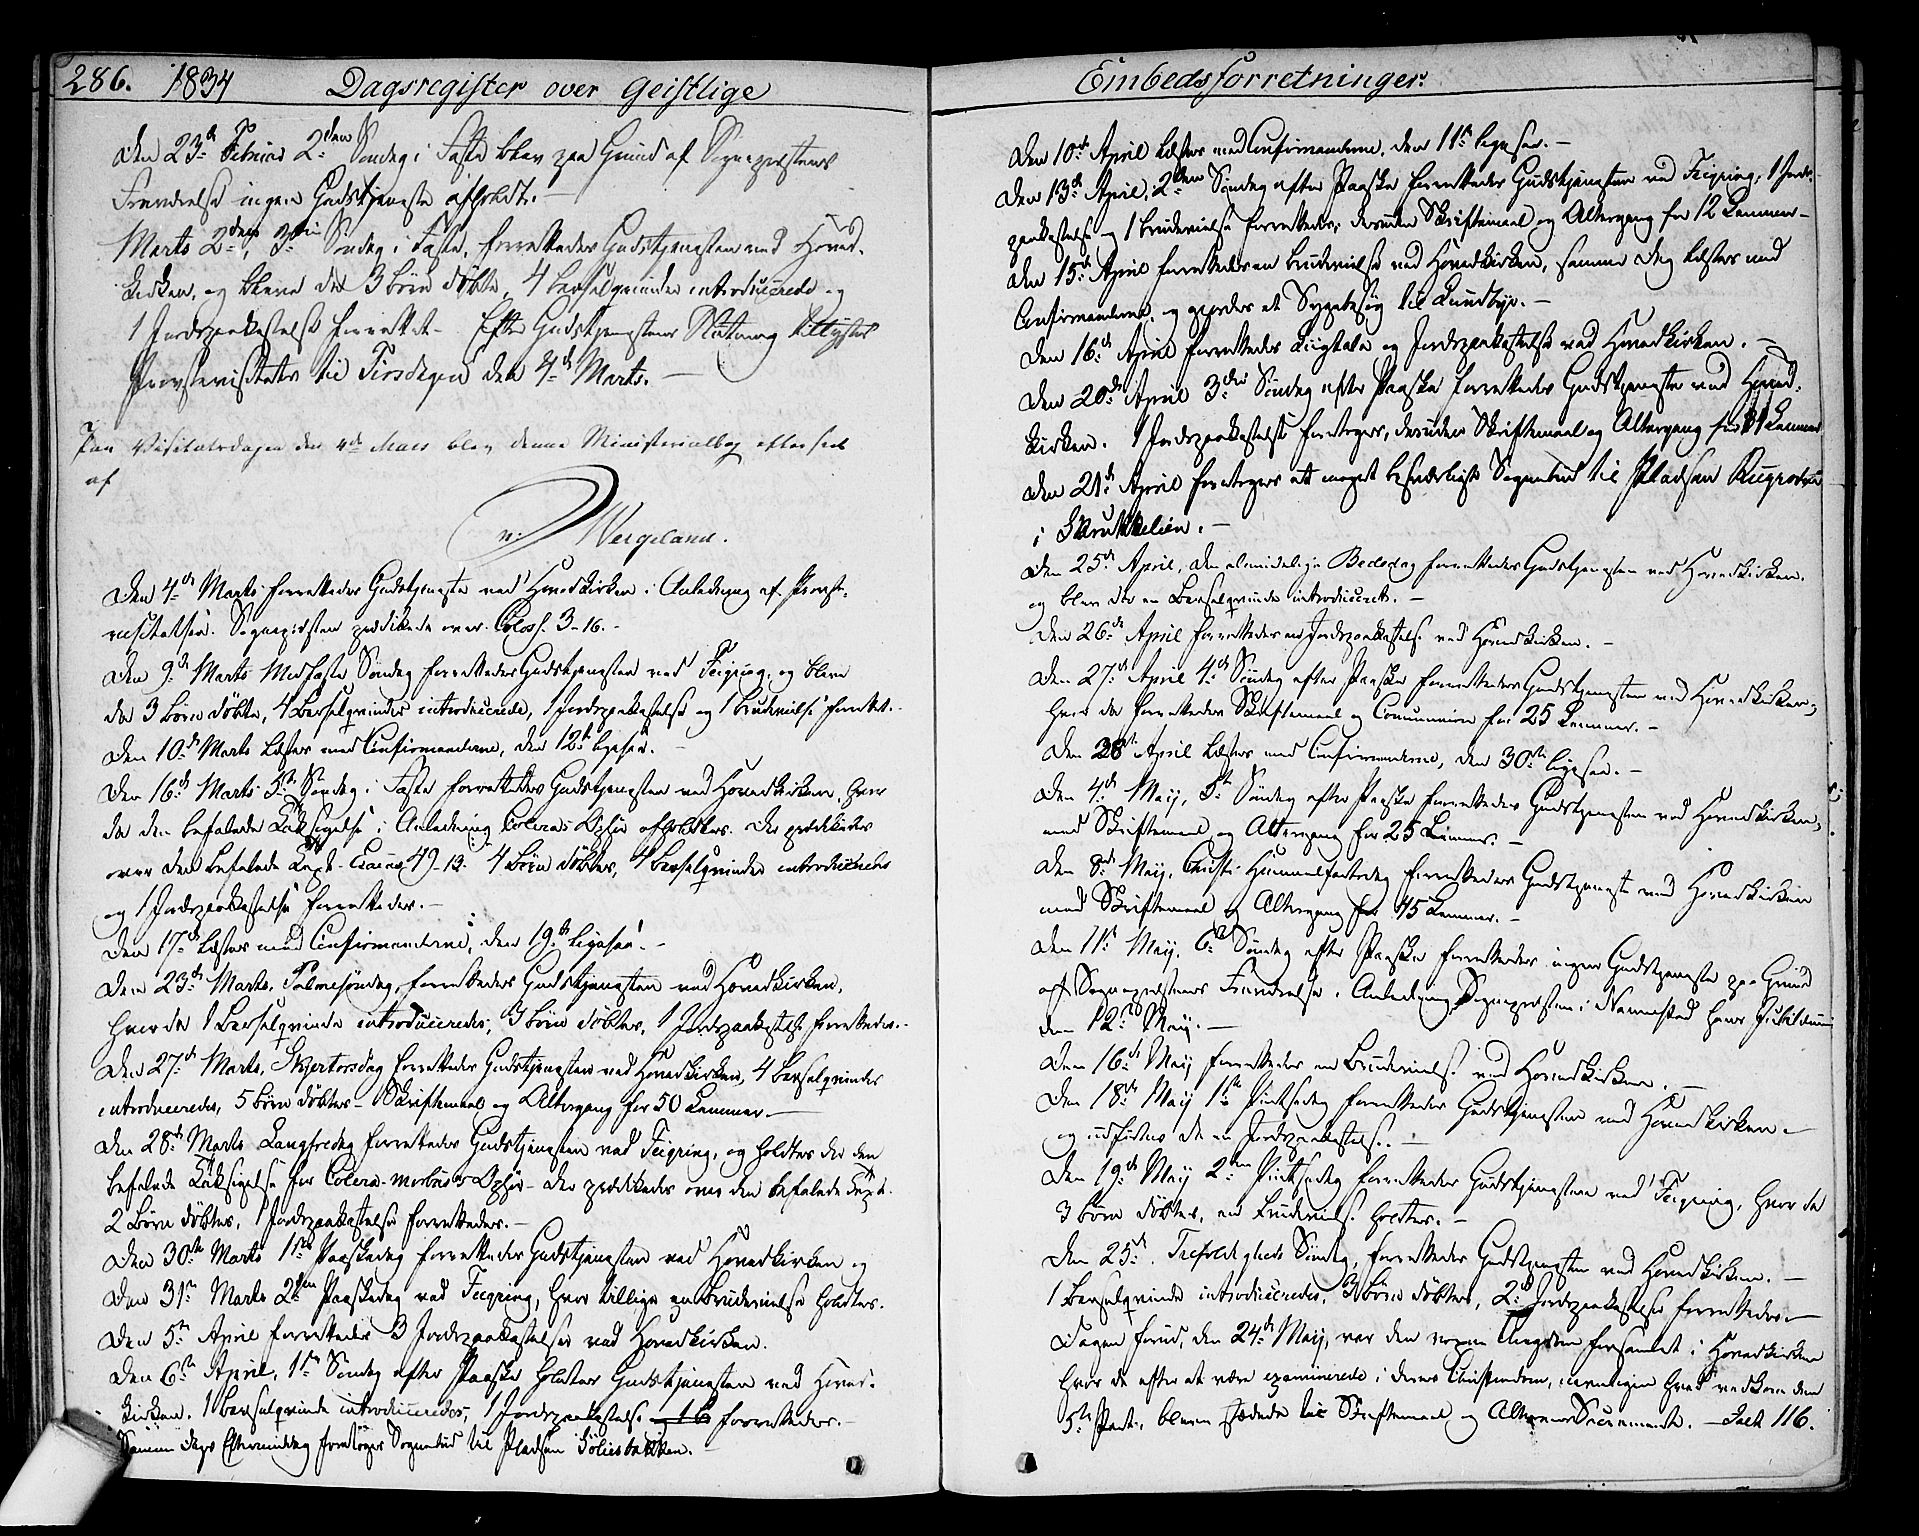 286. 1834 Dagsregister over Geistlige
Den 23d Februar 2den Søndag i Faste blev paa Grund af Sognepræstens
Fraværelse ingen Gudstjeneste afholdt. –
Marts 2den, 3die Søndag i Faste, forrettedes Gudstjenesten ved Hoved-
kirken, og bleve der 3 Børn døbte, 4 Barselqvinder introducerede og
1 Jordpaakastelse forrettet – Efter Gudstjenestens Slutning tillystes
Provstevisitats til Tirsdagen den 4de Marts. –
Paa Visitatsdagen den 4de Marts blev denne Ministerialbog efterseet
af
N: Wergeland.
Den 4de Marts forrettedes Gudstjeneste ved Hovedkirken i Anledning af Provste-
visitatsen. Sognepræsten prædikede over Coloss. 3-16. –
Den 9de Marts Midfaste Søndag forrettedes Gudstjenesten ved Feiring, og bleve
der 3 Børn døbte, 4 Barselqvinder introducerede, 1 Jordpaakastelse og 1 Brudevielse forrettet. –
Den 10de Marts læstes med Confirmanderne, den 12te ligesaa. –
Den 16de Marts 5te Søndag i Faste forrettedes Gudstjenesten ved Hovedkirken, hvor
da den befalede Taksigelse i Anledning Coleras Ophør afholdtes. Der prædikedes
over den befalede Text Esaias 49-13. 4 Børn døbtes, 4 Barselqvinder introduceredes
og 1 Jordpaakastelse forrettedes. –
Den 17de læstes med Confirmanderne, den 19de ligesaa. –
Den 23de Marts, Palmesøndag, forrettedes Gudstjenesten ved Hovedkirken,
hvor da 1 Barselqvinde introduceredes, 3 Børn døbtes, 1 Jordpaakastelse forrettedes. –
Den 27de Marts, Skjertorsdag forrettedes Gudstjenesten ved Hovedkirken, 4 Barselqvinder
introduceredes, 5 Børn døbtes – Skriftemaal og Altergang for 50 Lemmer –
Den 28de Marts Langfredag forrettedes Gudstjenesten ved Feiring, og holdtes der den
befalede Taksigelse for Colera-morbus's Ophør – der prædikedes over den befalede Text.
2 Børn døbtes, 1 Jordpaakastelse forrettedes. –
Den 30te Marts 1ste Paaskedag forrettedes Gudstjenesten ved Hovedkirken og
Den 31te Marts 2den Paaskedag ved Feiring, hvor tillige en Brudevielse holdtes.
Den 5te April forrettedes 3 Jordpaakastelser ved Hovedkirken.
Den 6te April, 1ste Søndag efter Paaske holdtes Gudstjenesten ved Hoved-
kirken. 1 Barselqvinde introduceredes, 1 Jordpaakastelse forrettedes. –
Samme Dags Eftermiddag foretoges Sognebud til Pladsen
Embedsforretninger.
Den 10de April læstes med Confirmanderne, den 11te ligesaa. –
Den 13de April, 2den Søndag efter Paaske forrettedes Gudstjenesten ved Feiring, 1 Jord-
paakastelse og 1 Brudevielse forrettedes, desuden Skriftemaal og Altergang for 12 Lemmer –
Den 15de April forrettedes en Brudevielse ved Hovedkirken, samme Dag læstes med
Confirmanderne, og gjordes et Sygebesøg til Lundbye. –
Den 16de April forrettedes Liigtale og Jordpaakastelse ved Hovedkirken. –
Den 20de April 3die Søndag efter Paaske forrettedes Gudstjeneste ved Hoved-
kirken. 1 Jordpaakastelse foretoges, desuden Skriftemaal og Altergang for Lemmer
Den 21de April foretoges et meget besværligt Sognebud til Pladsen
i Skrukkelien. –
Den 25de April, den almindelige Bededag forrettedes Gudstjenesten ved Hovedkirken,
og blev der en Barselqvinde introduceret. –
Den 26de April forrettedes en Jordpaakastelse ved Hovedkirken. –
Den 27de April 4de Søndag efter Paaske forrettedes Gudstjenesten ved Hovedkirken,
hvor da forrettedes Skriftemaal og Communion for 25 Lemmer. –
Den 28de April læstes med Confirmanderne, den 30te ligesaa. –
Den 4de Maij, 5te Søndag efter Paaske forrettedes Gudstjenesten ved Hovedkirken,
med Skriftemaal og Altergang for 25 Lemmer. –
Den 8de Maij, Christi Himmelfartsdag forrettedes Gudstjeneste ved Hovedkirken
med Skriftemaal og Altergang for 45 Lemmer. –
Den 11te Maij, 6te Søndag efter Paaske forrettedes ingen Gudstjeneste paa Grund
af Sognepræstens Fraværelse i Anledning Sognepræsten i Nannestad hans Jubilæum
den 12te Maij. –
Den 16de Maij forrettedes en Brudevielse ved Hovedkirken. –
Den 18de Maij 1ste Pintsedag forrettedes Gudstjenesten ved Hovedkirken –
og udførtes der en Jordpaakastelse. –
Den 19de Maij 2den Pintsedag forrettedes Gudstjenesten ved Feiring, hvor da
3 Børn døbtes, en Brudevielse holdtes. –
Den 25de. Trefoldigheds Søndag, forrettedes Gudstjenesten ved Hovedkirken. –
1 Barselqvinde introduceredes, 3 Børn døbtes, 2de Jordpaakastelser forrettedes –
Dagen forud, den 24de Maij, var den Ungdom forsamlet i Hovedkirken
hvor de efter at være examinerede i deres Christendom, navnligen hvad vedkom den
5te Part, bleve stædede til Skriftemaal og Altarens Sacramente. – Talt 116.